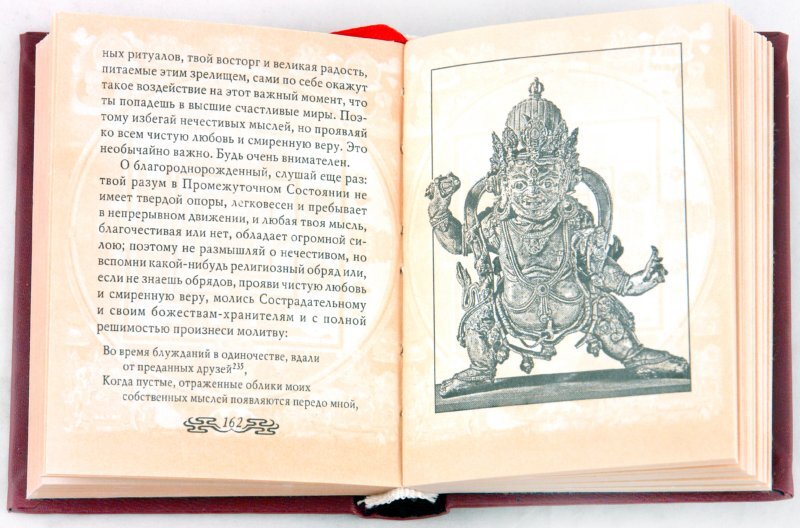 ных ритуалов, твой восторг и великая радость,
питаемые этим зрелищем, сами по себе окажут
такое воздействие на этот важный момент, что
ты попадешь в высшие счастливые миры. Поэ-
тому избегай нечестивых мыслей, но проявляй
ко всем чистую любовь и смиренную веру. Это
необычайно важно. Будь очень внимателен.
О благороднорожденный, слушай еще раз:
твой разум в Промежуточном Состоянии не
имеет твердой опоры, легковесен и пребывает
в непрерывном движении, и любая твоя мысль,
благочестивая или нет, обладает огромной си-
лою; поэтому не размышляй о нечестивом, но
вспомни какой-нибудь религиозный обряд или,
если не знаешь обрядов, прояви чистую любовь
и смиренную веру, молись Сострадательному
и своим божествам-хранителям и с полной
решимостью произнеси молитву:
Во время блужданий в одиночестве, вдали
от преданных друзей²³⁵,
Когда пустые, отраженные облики моих
собственных мыслей появляются передо мной,
162